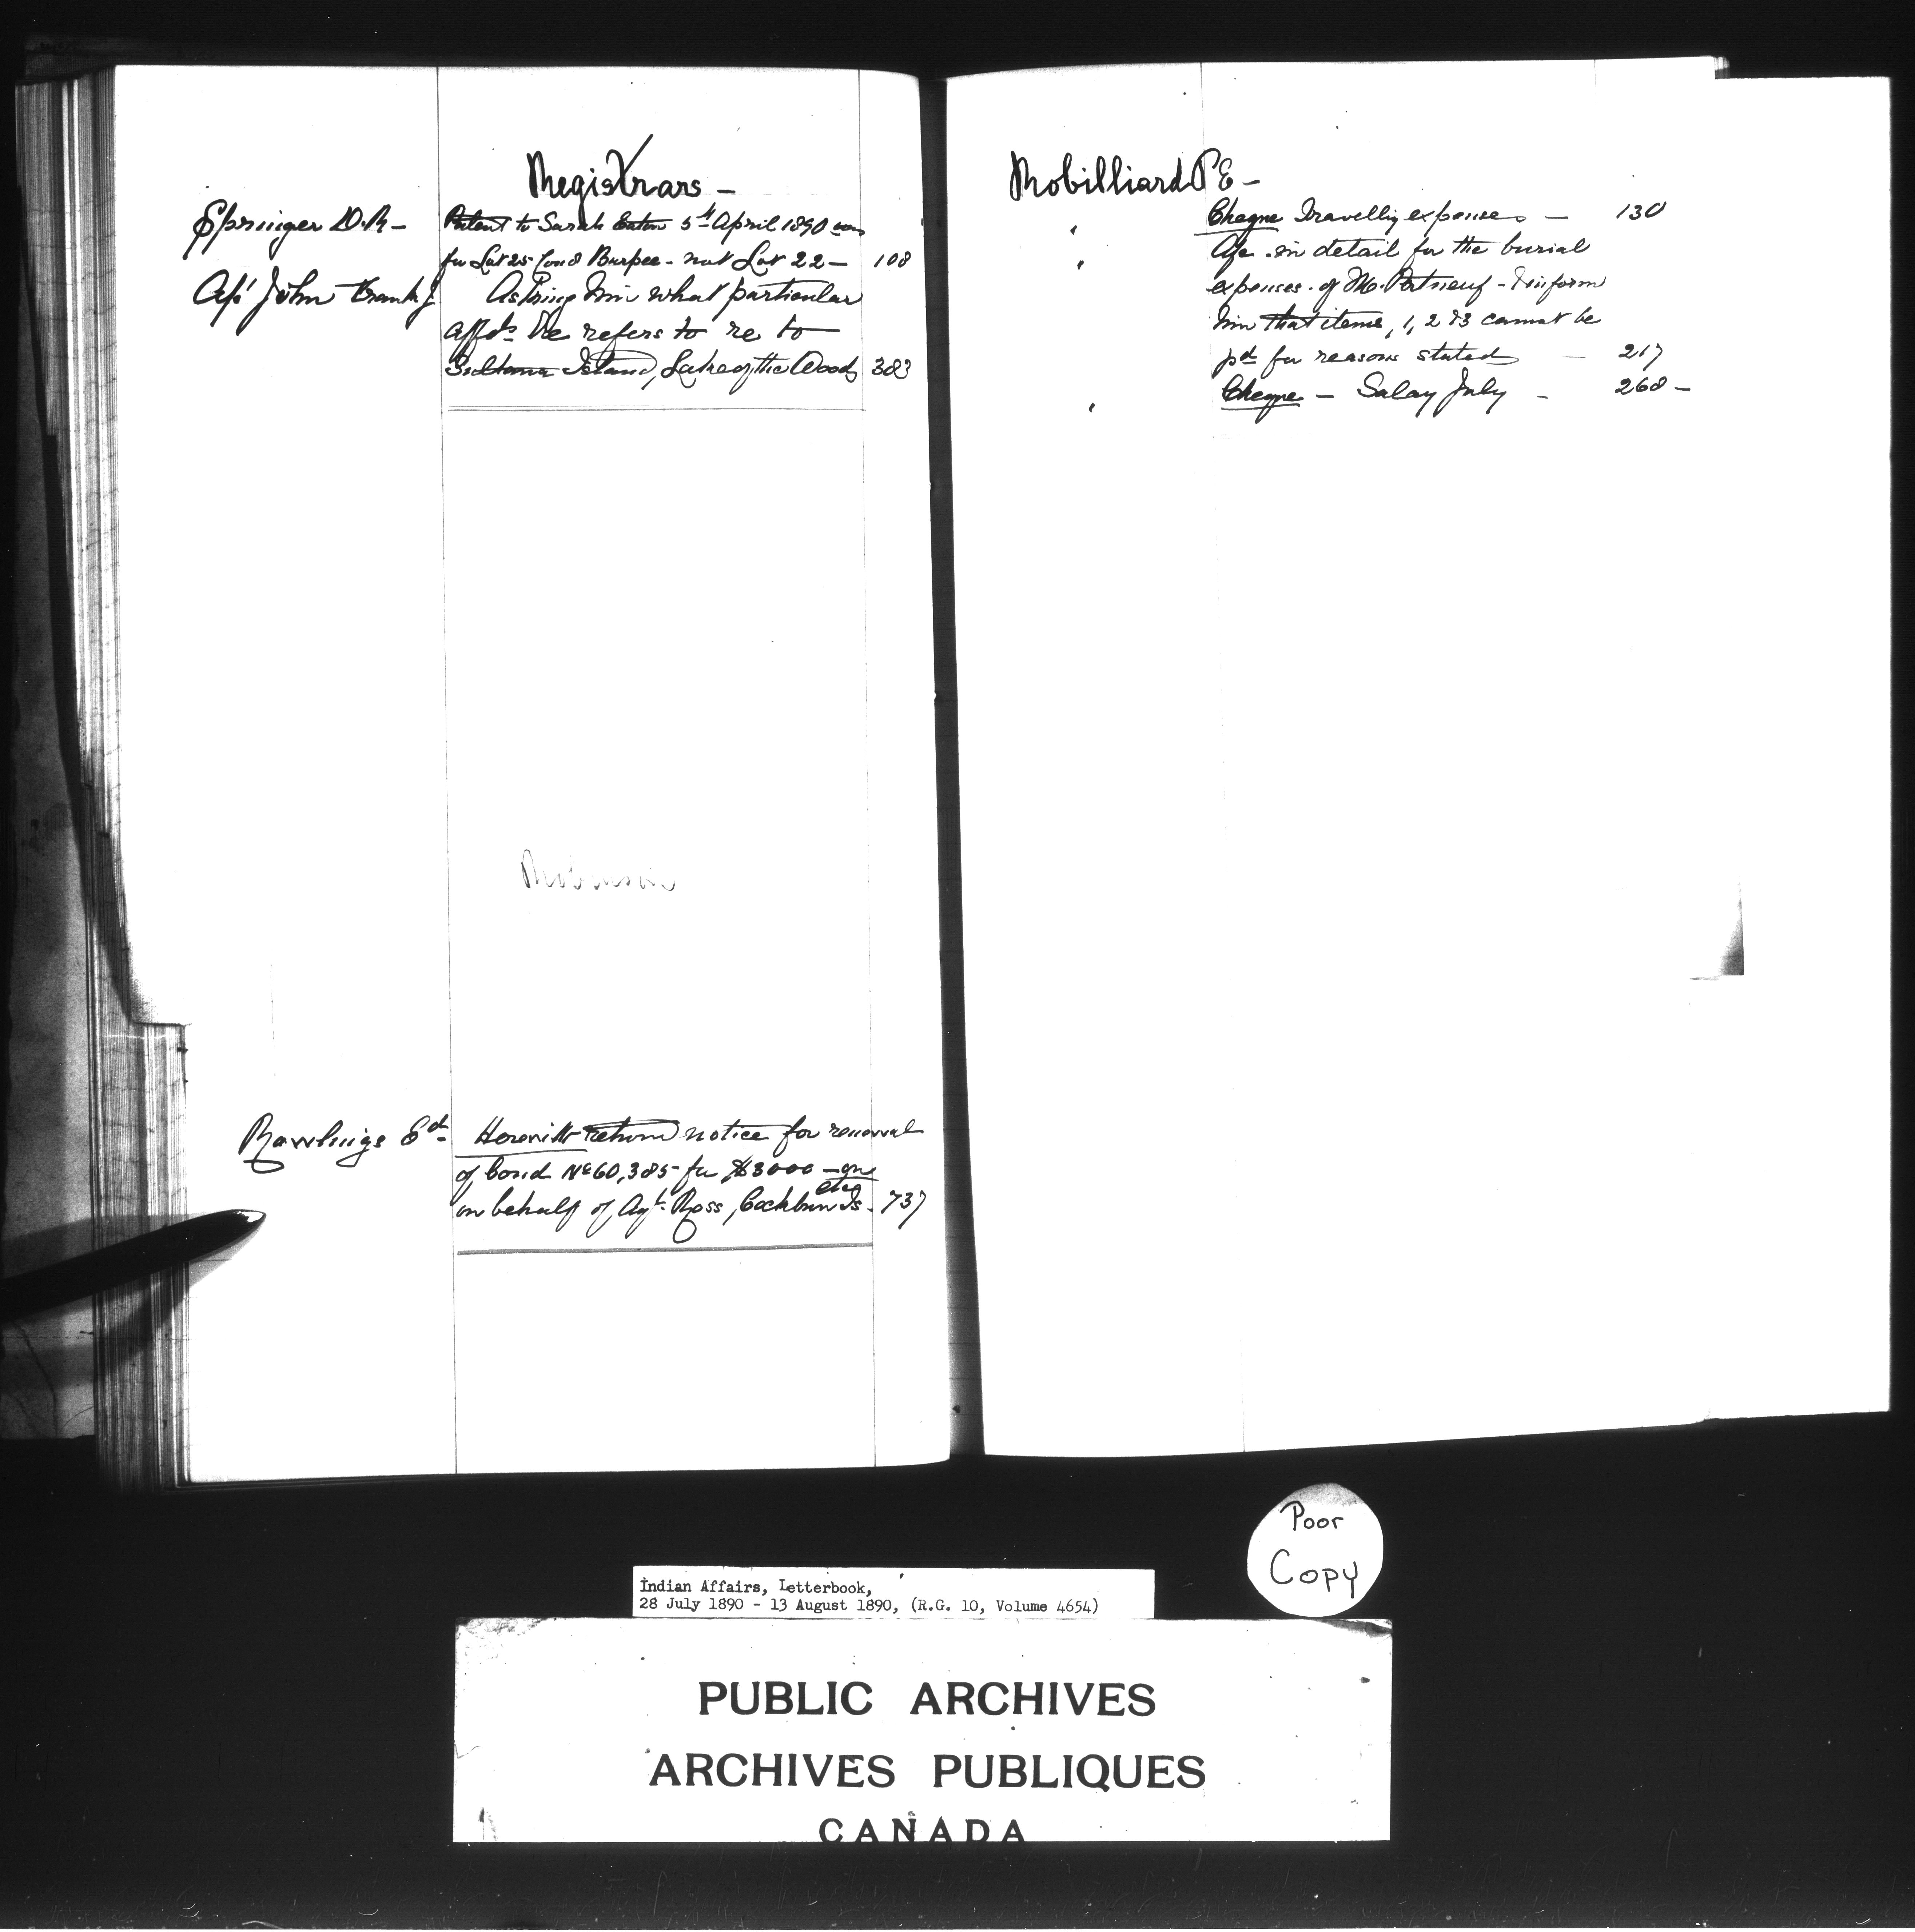 Registrars –
Springer D.R – Patent to Sarah Eaton 5th April 1890 was
for Lot 25 Con 8 Burpee – not Lot 22 – 108
John Frank J Asking him what particular
affds he refers to re to
Sultana Island, Lake of the Woods 383
Robinson
Rawlings Ed Herewith return notice for renewal
of bond No 60,385 for $3000 –
on behalf of Agt. Ross, Cockburn Is. 737
Robilliard P E –
" Cheque Travellig expenses – 130
" in detail for the burial
expenses of M. Portneuf – & inform
him that items, 1, 2 & 3 cannot be
pd for reasons stated – 217
" Cheque – Salary July – 268 –
Poor
Copy
Indian Affairs, Letterbook,
28 July 1890 - 13 August 1890, (R.G. 10, Volume 4654)
PUBLIC ARCHIVES
ARCHIVES PUBLIQUES
CANADA